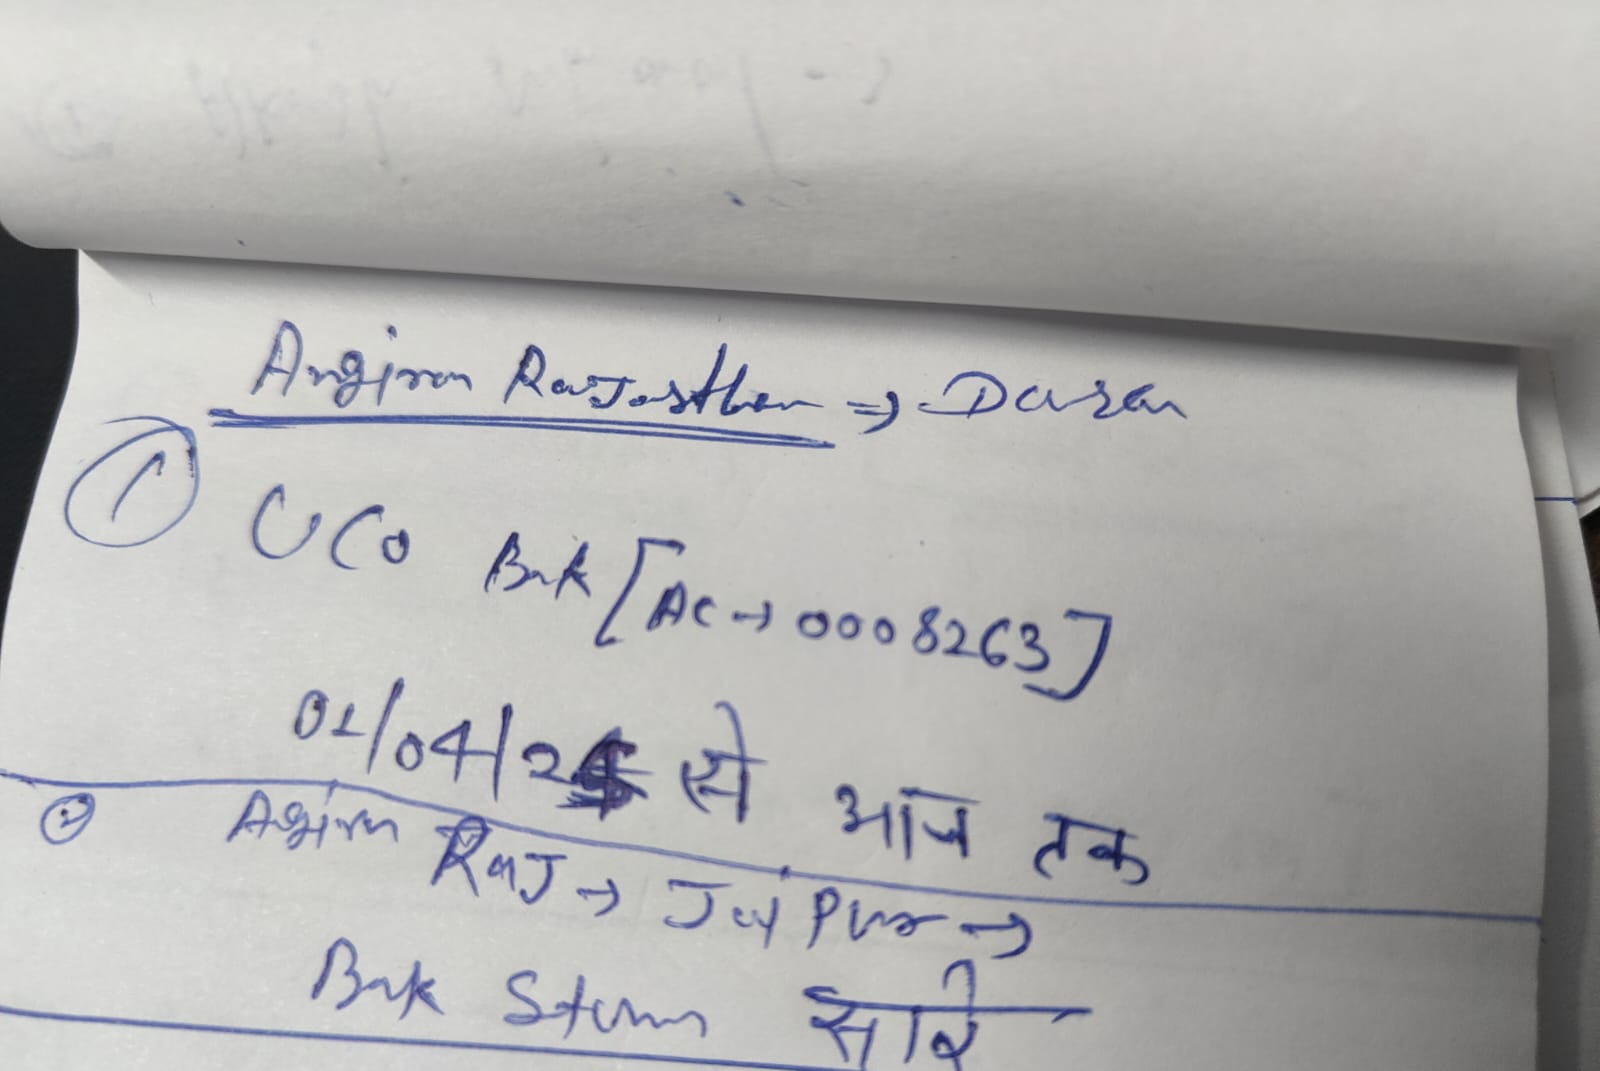 Angira Rajasthan ⇒ Dausa
① UCO Bnk [AC → 0008263]
01/04/25 से आज तक
② Agira Raj → Jaipur →
Bnk Stemn सारे